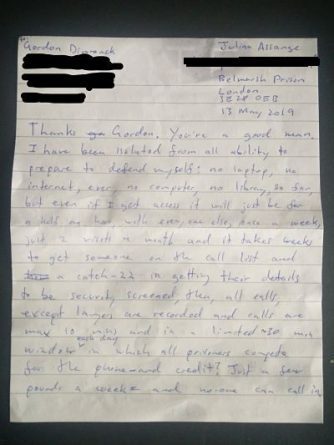 Gordon Dimmack
Julian Assange
Belmarsh Prison
London
SE28 0EB
13 May 2019
Thanks Gordon. You're a good man.
I have been isolated from all ability to
prepare to defend myself: no laptop, no
internet, ever, no computer, no library, so far,
but even if I get access it will just be for
a half an hour, with everyone else, once a week,
just 2 visits a month and it takes weeks
to get someone on the call list and
a catch-22 in getting their details
to be security screened, then, all calls,
except lawyer are recorded and calls are
max 10 mins and in a limited ~30 min
each day
window in which all prisoners compete
for the phone and credit? Just a few
pounds a week and no-one can call in